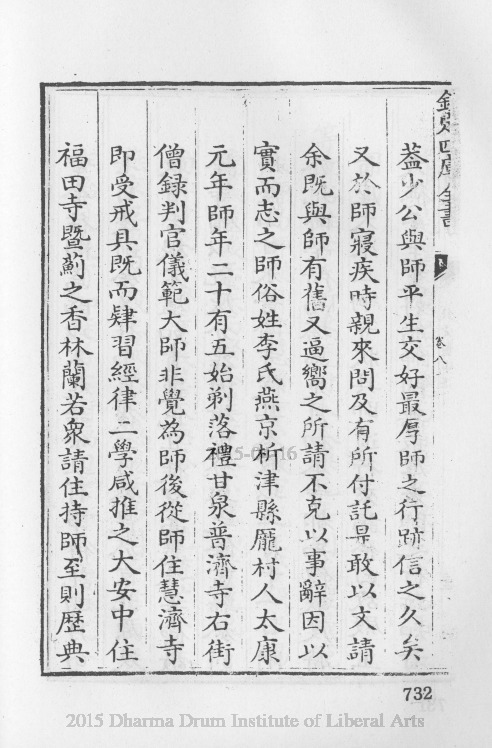 欽定四庫全書
卷八
蓋少公與師平生交好最厚師之行跡信之久矣
又於師寢疾時親來問及有所付託是敢以文請
余既與師有舊又逼嚮之所請不克以事辭因以
實而志之師俗姓李氏燕京析津縣龐村人太康
元年師年二十有五始剃落禮甘泉普濟寺右街
僧録判官儀範大師非覺為師後從師住慧濟寺
即受戒具既而肄習經律二學咸推之大安中住
福田寺暨薊之香林蘭若衆請住持師至則歷典
732
2015 Dharma Drum Institute of Liberal Arts